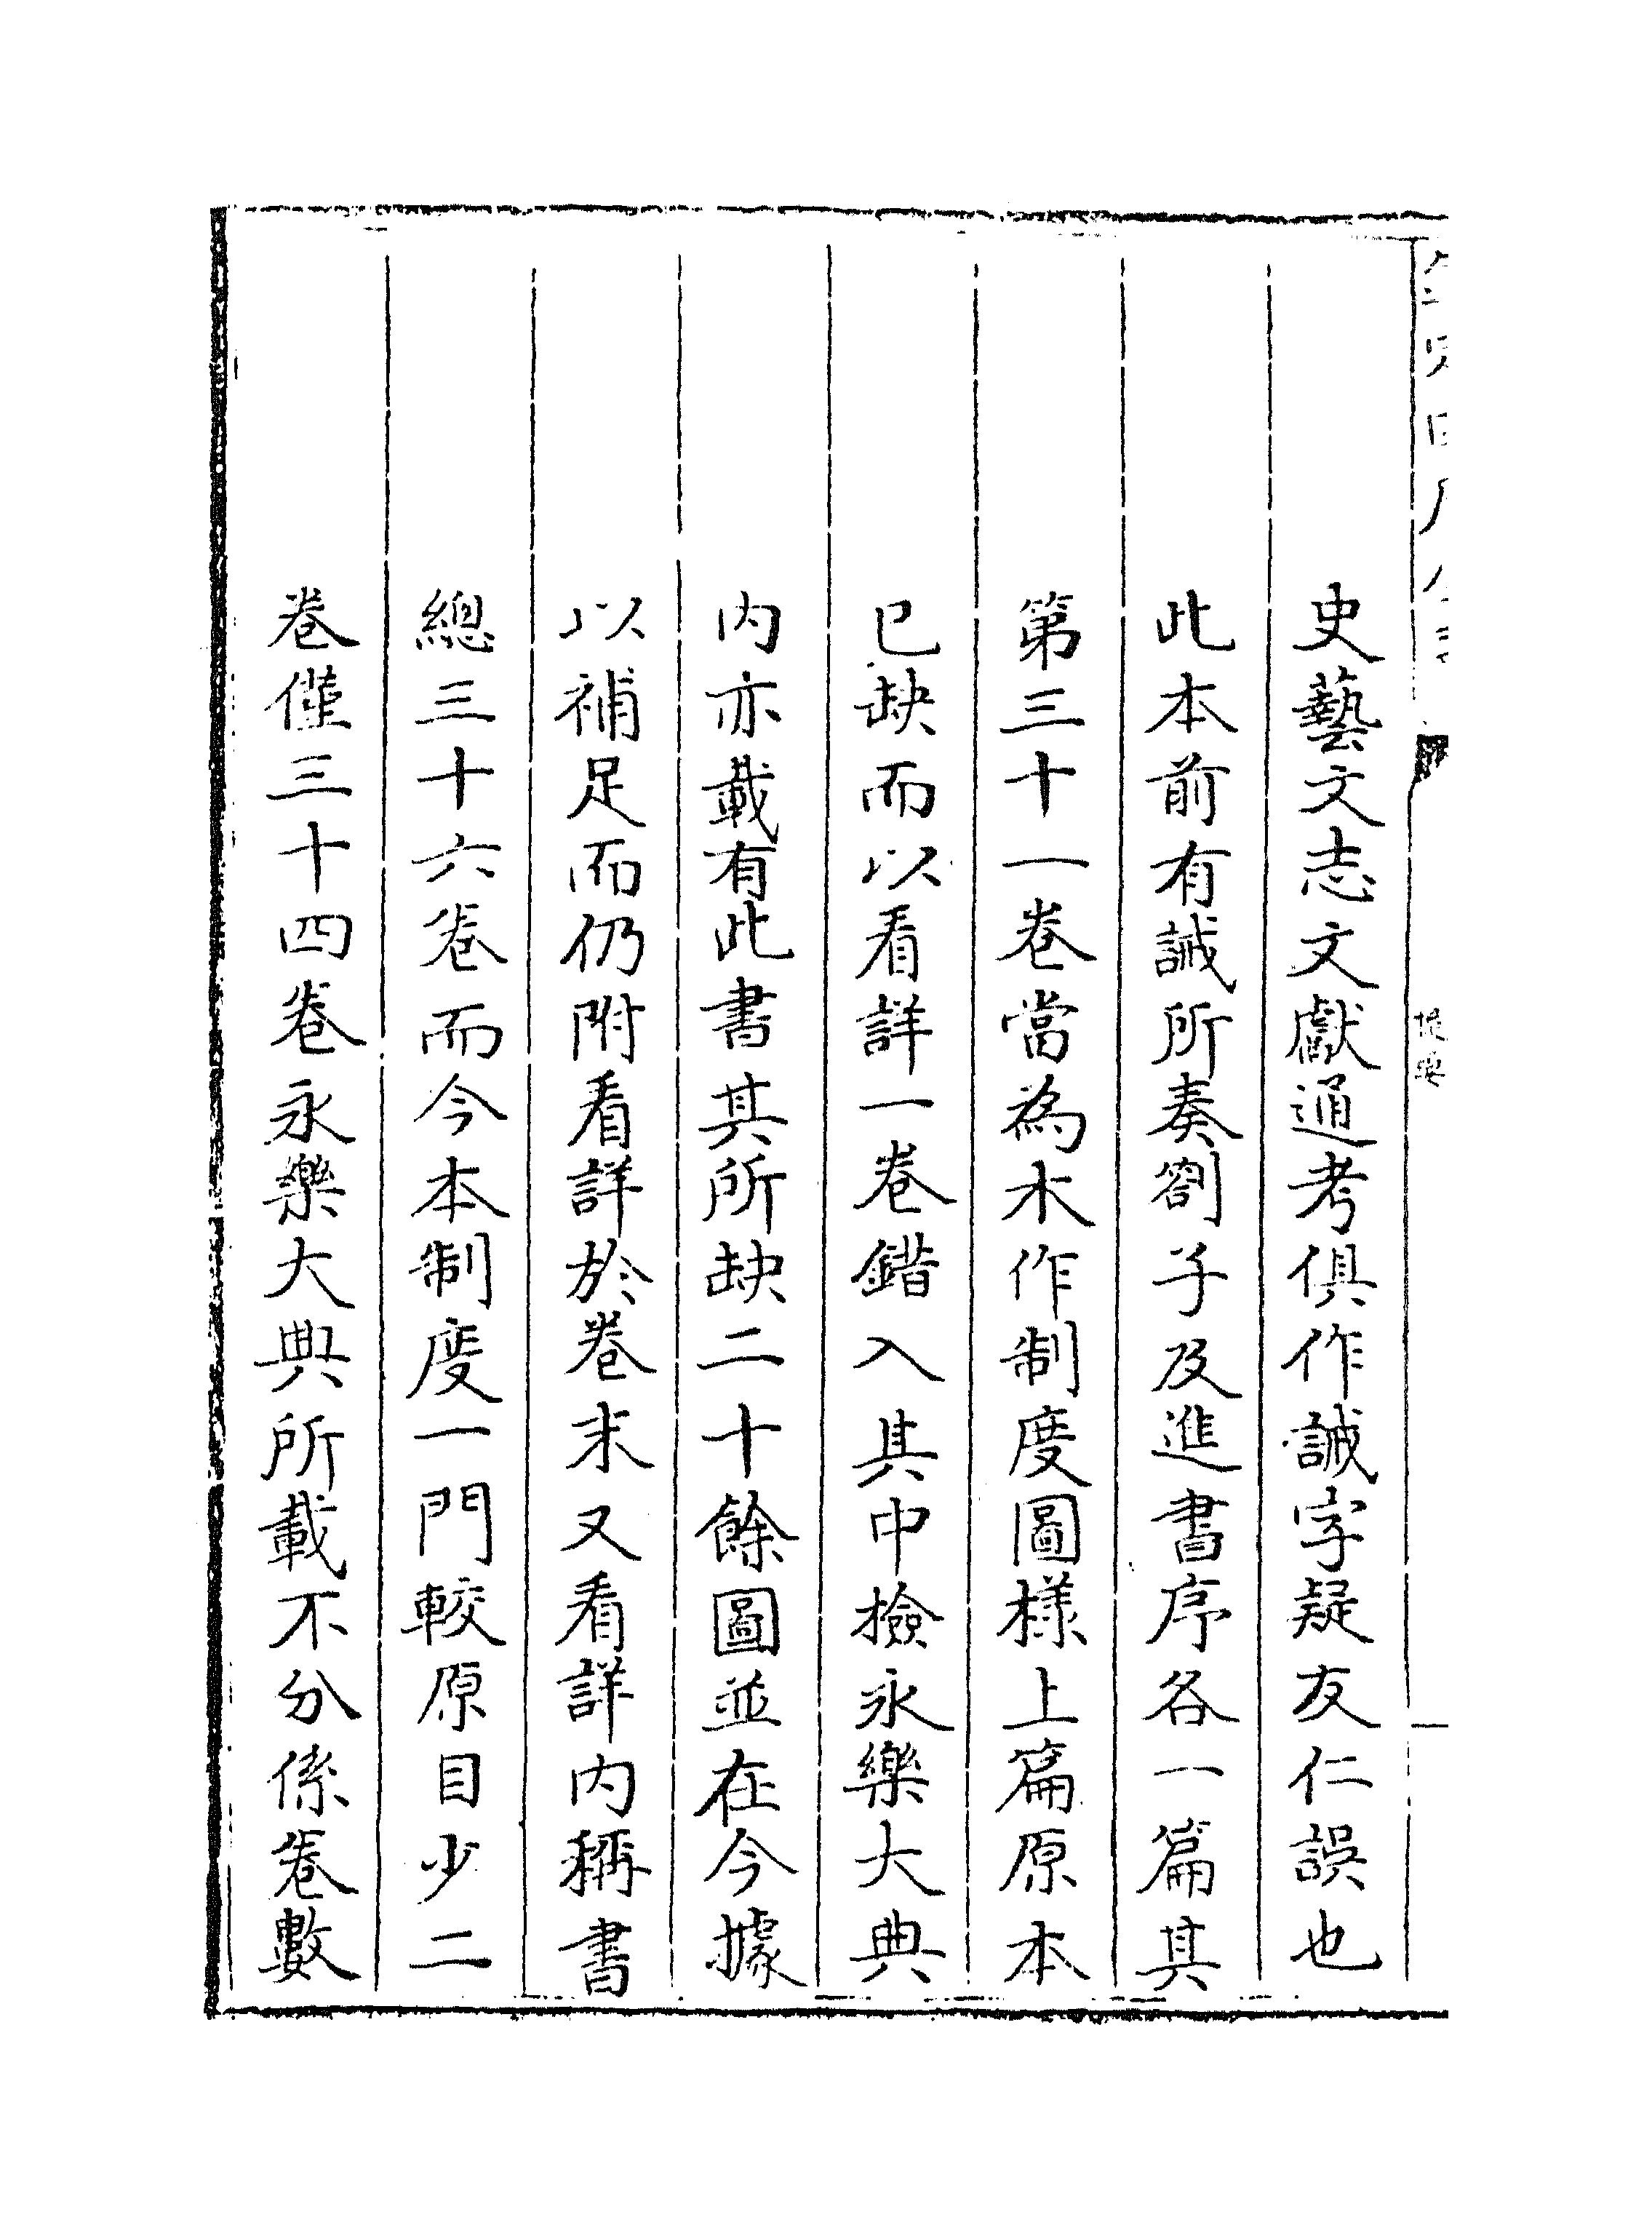 史藝文志文獻通考俱作誡字疑友仁誤也
此本前有誡所奏劄子及進書序各一篇其
第三十一卷當為木作制度圖樣上篇原本
已缺而以看詳一卷錯入其中檢永樂大典
内亦載有此書其所缺二十餘圖並在今據
以補足而仍附看詳於卷末又看詳内稱書
總三十六卷而今本制度一門較原目少二
卷僅三十四卷永樂大典所載不分係卷數
提要